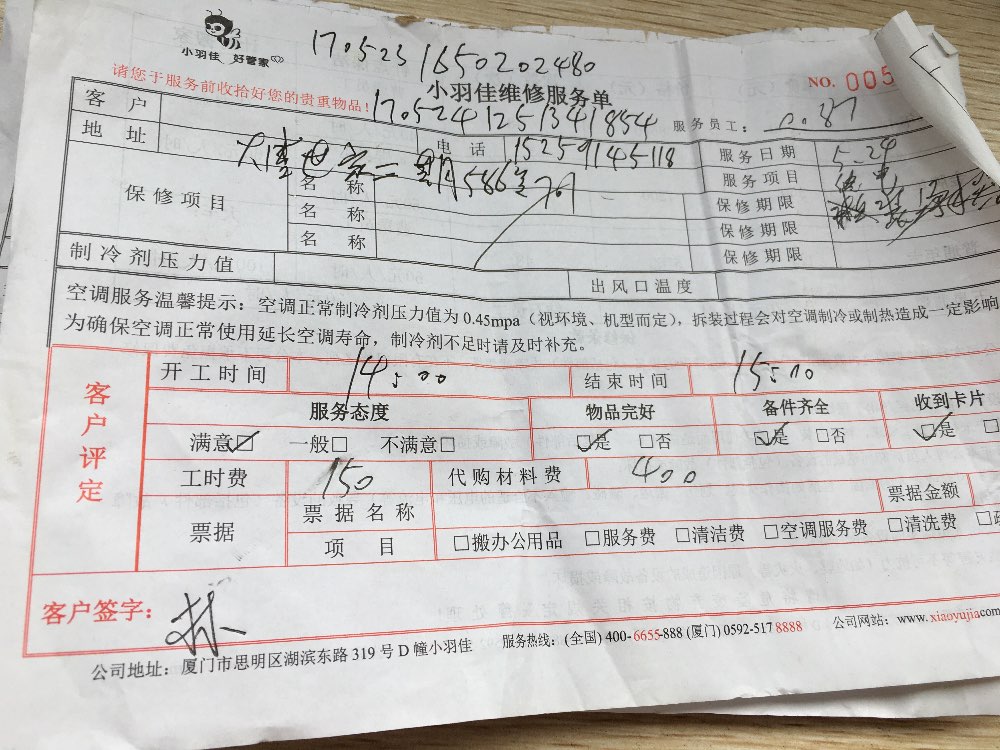 小羽佳 好管家
170523 1650202480
请您于服务前收拾好您的贵重物品!
小羽佳维修服务单
NO. 005
170524 1251341854
服务员工:
客 户
地 址
电 话 15259145118
服务日期 5.24
服务项目
保修项目
名 称 586
名 称
名 称
保修期限
保修期限
保修期限
制冷剂压力值
出风口温度
空调服务温馨提示: 空调正常制冷剂压力值为 0.45mpa (视环境、机型而定), 拆装过程会对空调制冷或制热造成一定影响
为确保空调正常使用延长空调寿命, 制冷剂不足时请及时补充。
客户评定
开工时间 14:00 结束时间 15:10
服务态度 物品完好 备件齐全 收到卡片
满意☑ 一般□ 不满意□ ☑是 □否 ☑是 □否 ☑是 □
工时费 150 代购材料费 400
票据 票据名称 票据金额
项 目 □搬办公用品 □服务费 □清洁费 □空调服务费 □清洗费
客户签字: 林
公司地址: 厦门市思明区湖滨东路 319 号 D 幢小羽佳 服务热线: (全国) 400-6655-888 (厦门) 0592-517 8888 公司网站: www.xiaoyujia.com